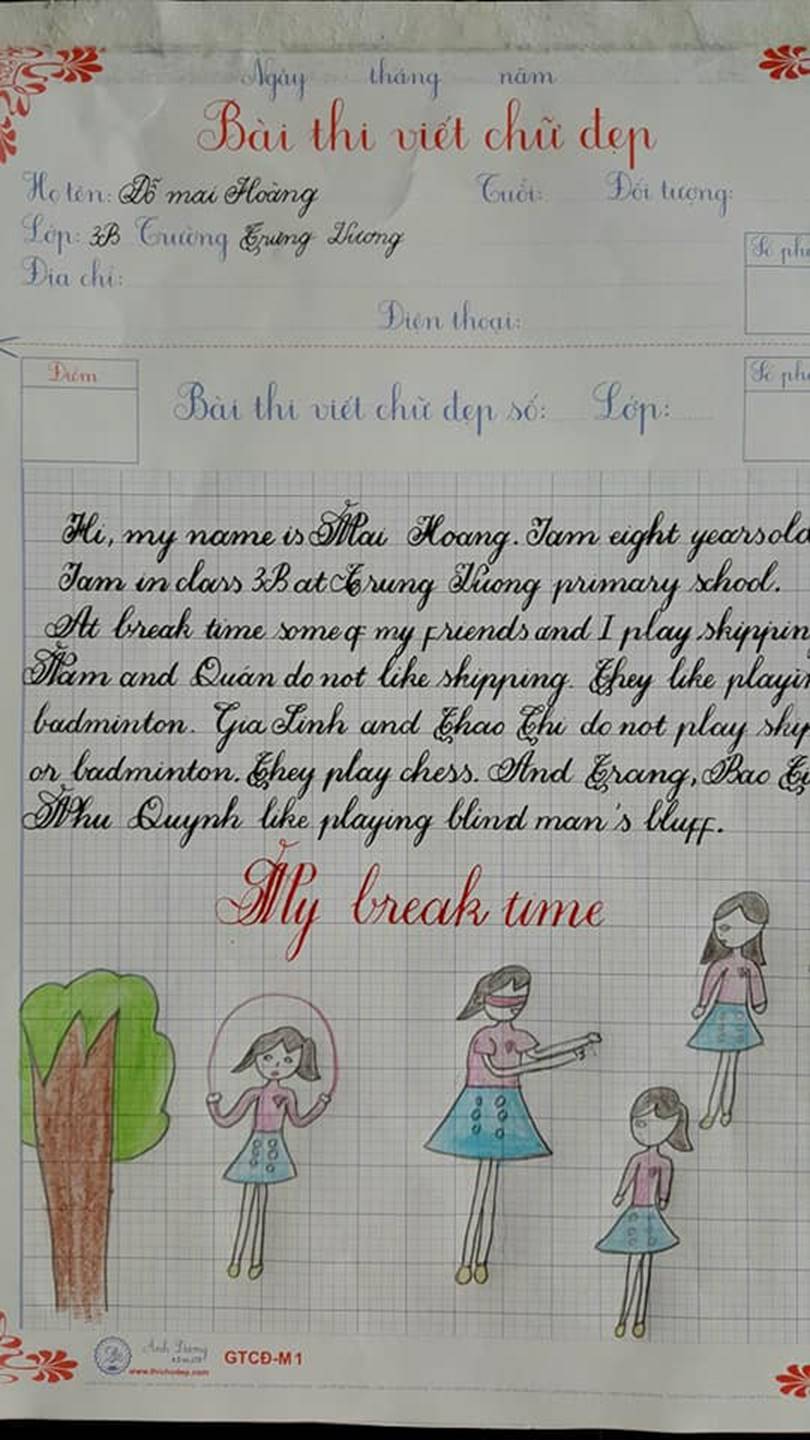 Ngày tháng năm
Bài thi viết chữ đẹp
Họ tên: Đỗ mai Hoàng Tuổi: Đối tượng:
Lớp: 3B Trường Trưng Vương
Địa chỉ:
Điện thoại:
Số ph
Điểm
Bài thi viết chữ đẹp số: Lớp:
Số ph
Hi, my name is Mai Hoang. I am eight years old
I am in class 3B at Trung Vuong primary school.
At break time some of my friends and I play skippin
Nam and Quán do not like skipping. They like playin
badminton. Gia Linh and Thao Chi do not play skip
or badminton. They play chess. And Trang, Bao
Nhu Quynh like playing blind man's bluff.
My break time
Ánh Dương
www.thichudep.com
GTCĐ-M1